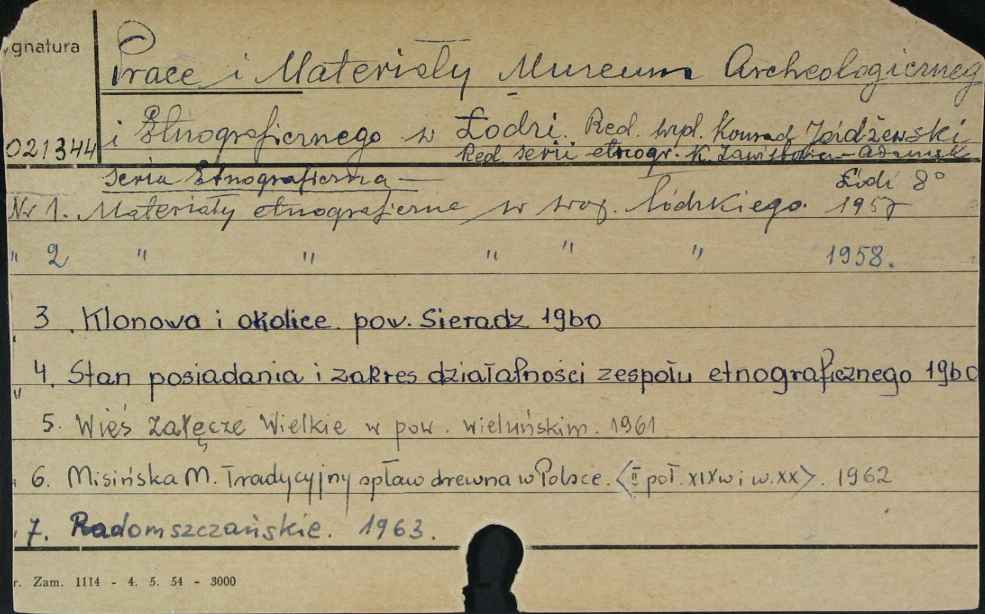 gnatura
Prace i Materiały Muzeum Archeologiczneg
i Etnograficznego w Łodzi. Red. wspł. Konrad Jażdżewski
021344
Red. serii etnogr. K. Zawistowicz-Adamska
Seria Etnograficzna — Łódź 8°
Nr 1. Materiały etnograficzne w woj. łódzkiego. 1957
" 2 " " " " " 1958.
3. Klonowa i okolice. pow. Sieradz 1960
" 4. Stan posiadania i zakres działalności zespołu etnograficznego 1960
5. Wieś Załęcze Wielkie w pow. wieluńskim. 1961
" 6. Misińska M. Tradycyjny spław drewna w Polsce. <II poł. XIX w i w. XX>. 1962
" 7. Radomszczańskie. 1963.
r. Zam. 1114 - 4. 5. 54 - 3000